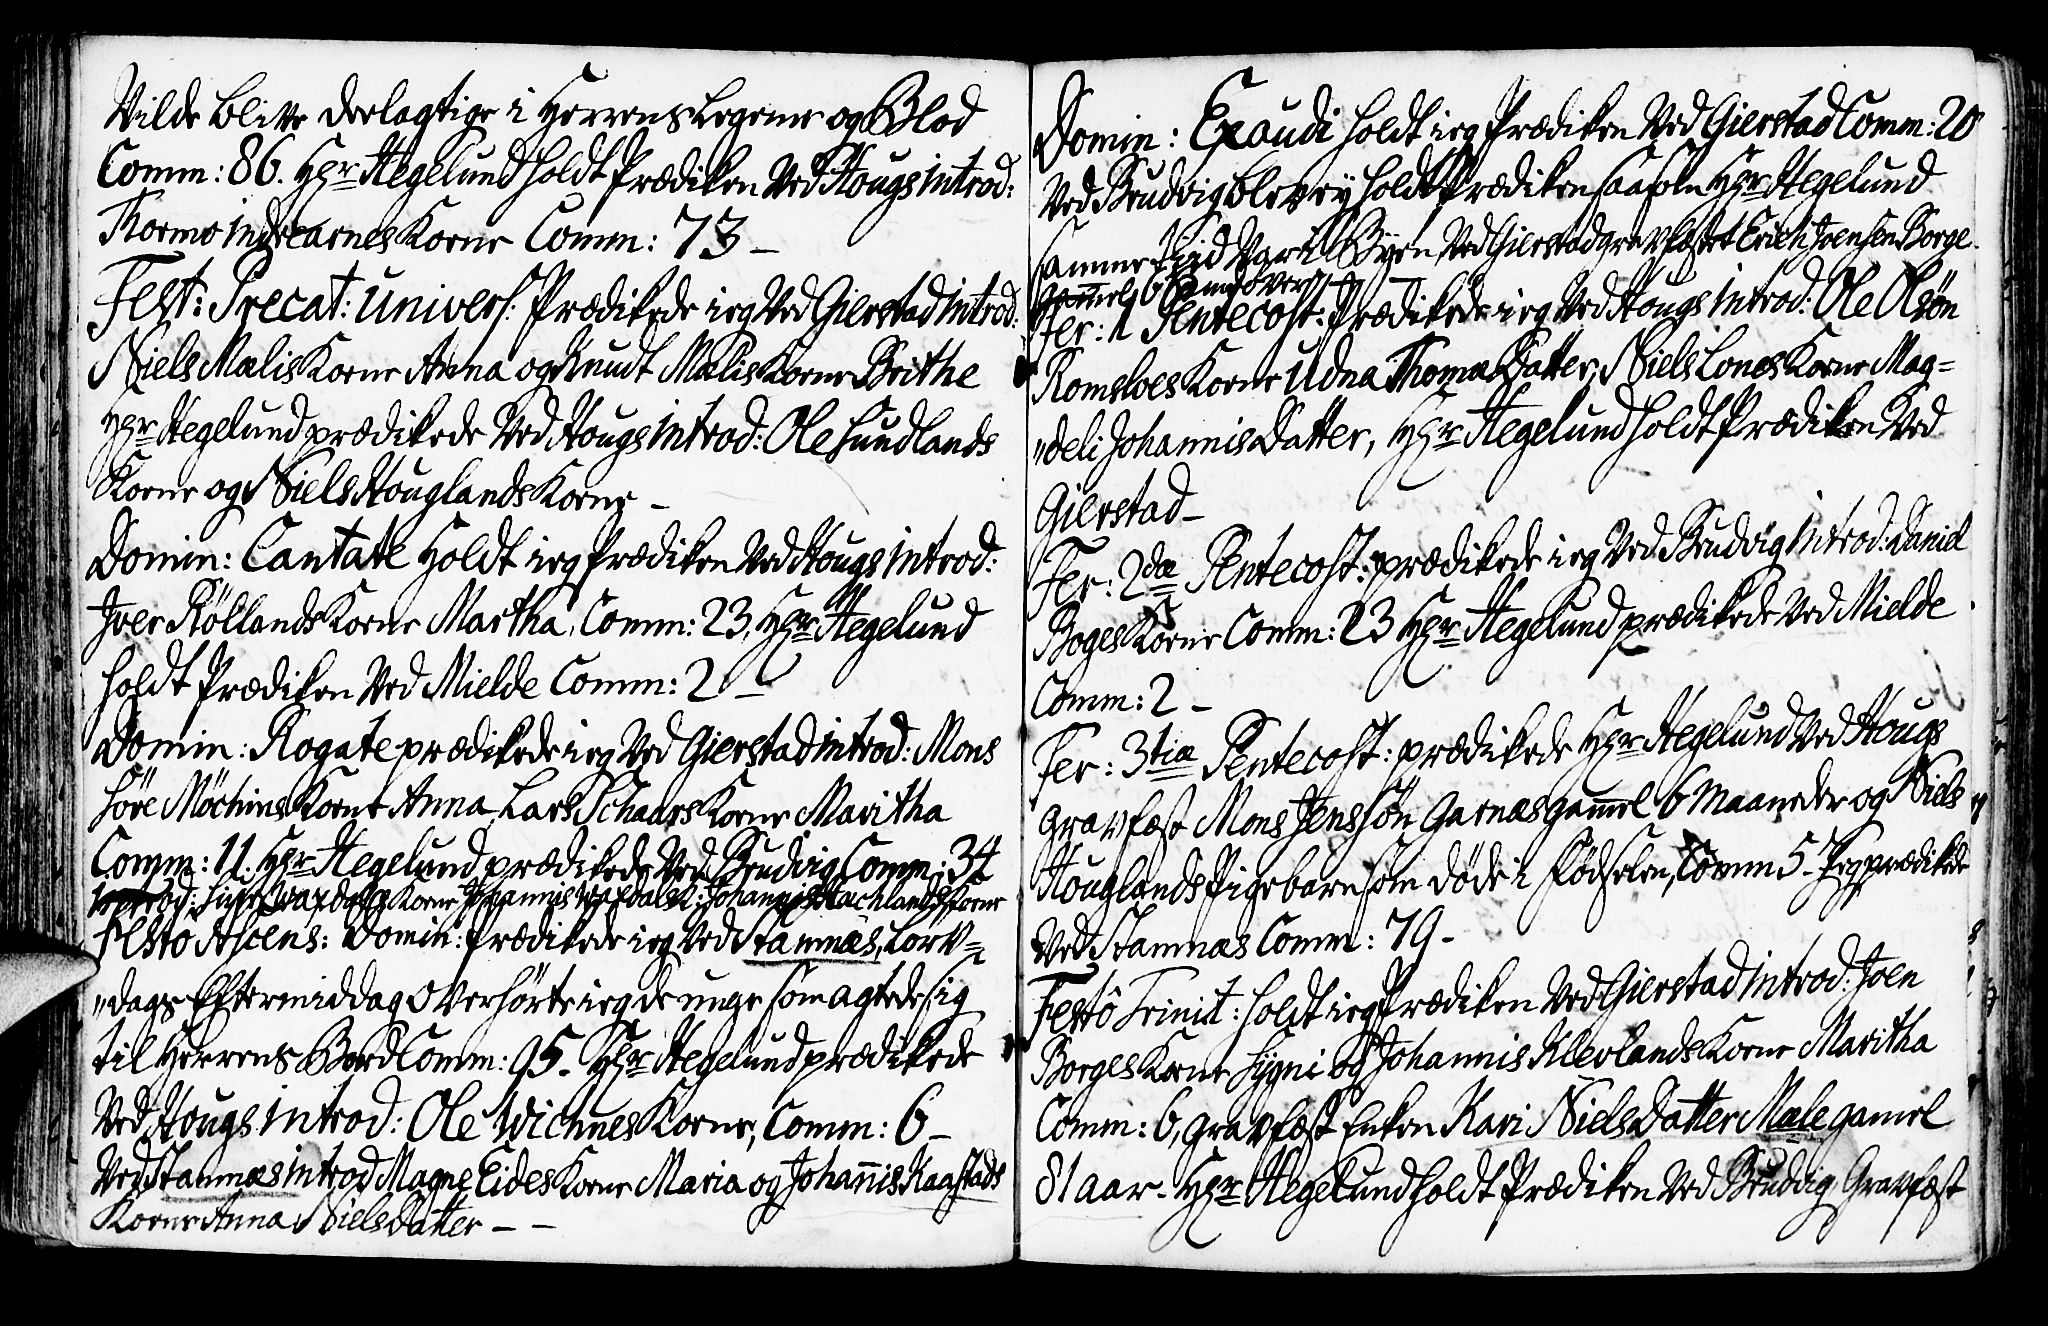 Vilde blive deelagtige i Herrens Legeme og Blod
Comm: 86. Hr Hegelund holdt Prædiken Ved Hougs introd:
Thormo Indrearnes Kone Comm: 73 –
Fest: Precat: Univers: Prædikede ieg Ved Gierstad introd:
Niels Mælis Kone Anna og Knudt Mælis Kone Brithe
Hr Hegelund prædikede Ved Hougs introd: Ole Sundlands
Kone og Niels Houglands Kone –
Domin: Cantate Holdt ieg Prædiken Ved Hougs introd:
Iver Röllands Kone Martha, Comm: 23, Hr Hegelund
holdt Prædiken Ved Mielde Comm: 2 –
Domin: Rogate prædikede ieg Ved Gierstad introd: Mons
Söre Möchins Kone Anna, Lars Schaars Kone Maritha
Comm: 11. Hr Hegelund prædikede Ved Brudvig Comm: 34
introd: Kone Johannis Wax­dals K: Johannis Kone
Festo Ascens: Domin: Prædikede ieg Ved Stamnæs, Lörv=
„dags Eftermiddag Overhörte ieg de unge som agtede sig
til Herrens Bord Comm: 95. Hr Hegelund prædikede
Ved Hougs introd: Ole Wichnes Kone, Comm: 6 –
Ved Stamnæs introd Magne Eides Kone Maria og Johannis Kaastads
Kone Anna Niels Datter – –
Domin: Exaudi holdt ieg Prædiken Ved Gierstad Comm: 20
Ved Brudvig blev ey holdt Prædiken saasom Hr Hegelund
samme tiid Var i Byen Ved Gierstad gravfæstet Erich Joensen Borge
gammel 6
Fer: 1 Pentecost: Prædikede ieg Ved Hougs introd: Ole Olsön
Romsloes Kone Udna Thomæ Datter, Niels Lones Kone Mag=
„deli Johannis Datter, Hr Hegelund holdt Prædiken Ved
Gierstad –
Fer: 2dæ Pentecost: prædikede ieg Ved Brudvig introd: Daniel
Boges Kone Comm: 23 Hr Hegelund prædikede Ved Mielde
Comm: 2 –
Fer: 3tiæ Pentecost: prædikede Hr Hegelund Ved Hougs
gravfæst Mons Jenssön Garnæs gamel 6 Maaneder og Niels
Houglands Pigebarn som döde i Födselen, Comm 5 – Jeg prædikede
Ved Stamnæs Comm: 79 –
Festô Trinit: holdt ieg Prædiken Ved Gierstad introd: Joen
Borges Kone Sygni og Johannis Klevlands Kone Maritha
Comm: 6, gravfæst Enken Kari Niels Datter Mæle gamel
81 aar – Hr Hegelund holdt Prædiken Ved Brudvig Gravfæst